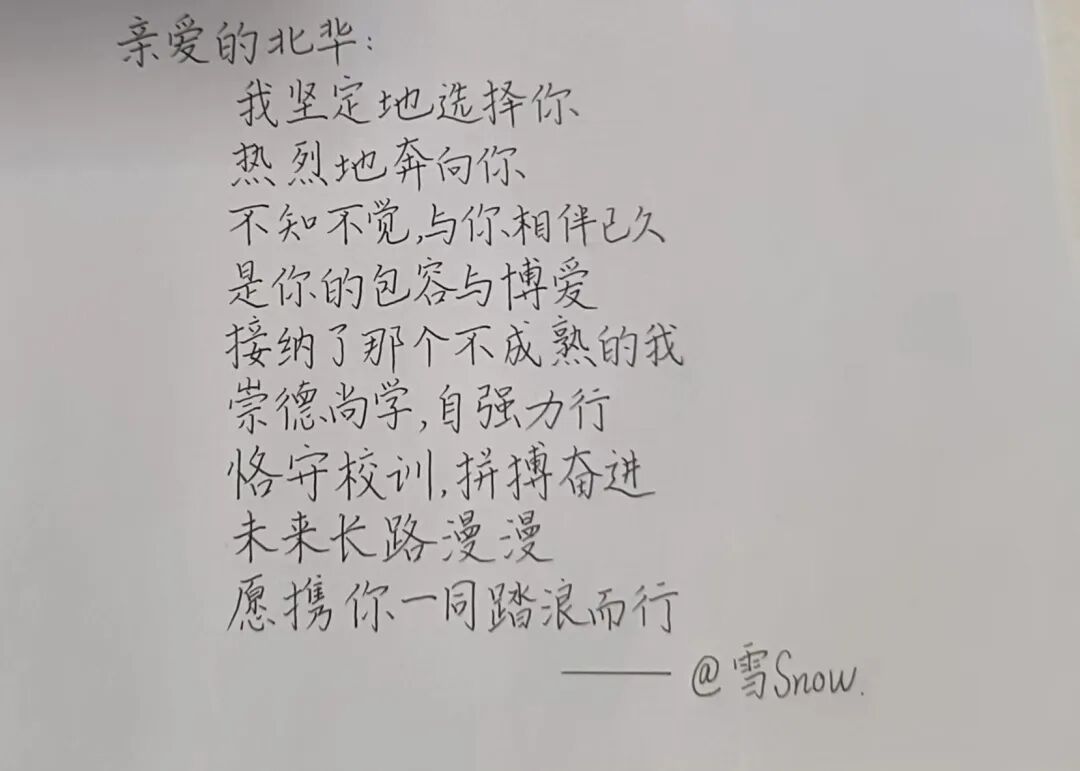 亲爱的北华:
我坚定地选择你
热烈地奔向你
不知不觉,与你相伴已久
是你的包容与博爱
接纳了那个不成熟的我
崇德尚学,自强力行
恪守校训,拼搏奋进
未来长路漫漫
愿携你一同踏浪而行
——@雪Snow.